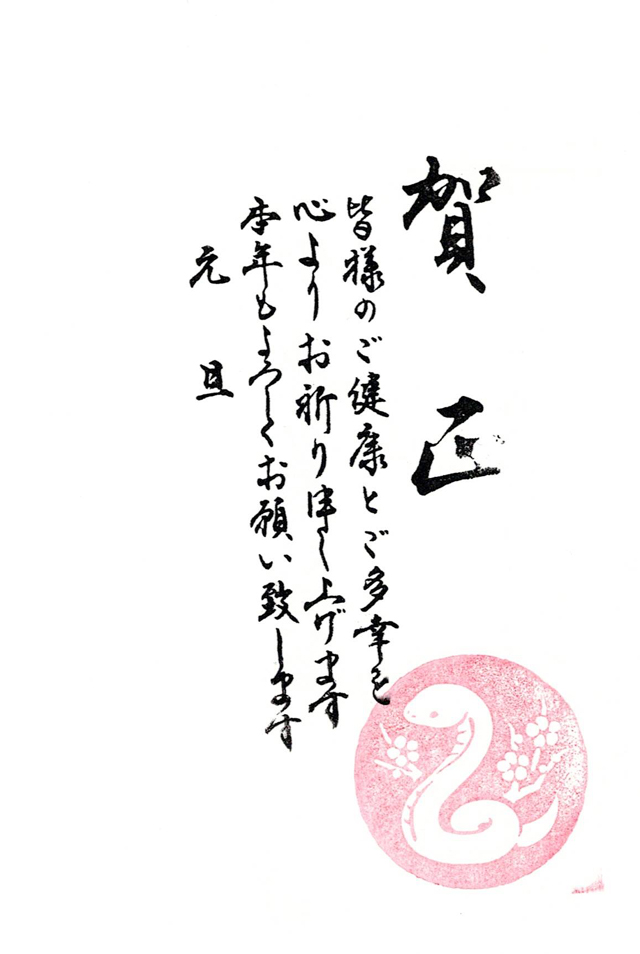 賀正
皆様のご健康とご多幸を
心よりお祈り申し上げます
本年もよろしくお願い致します
元旦